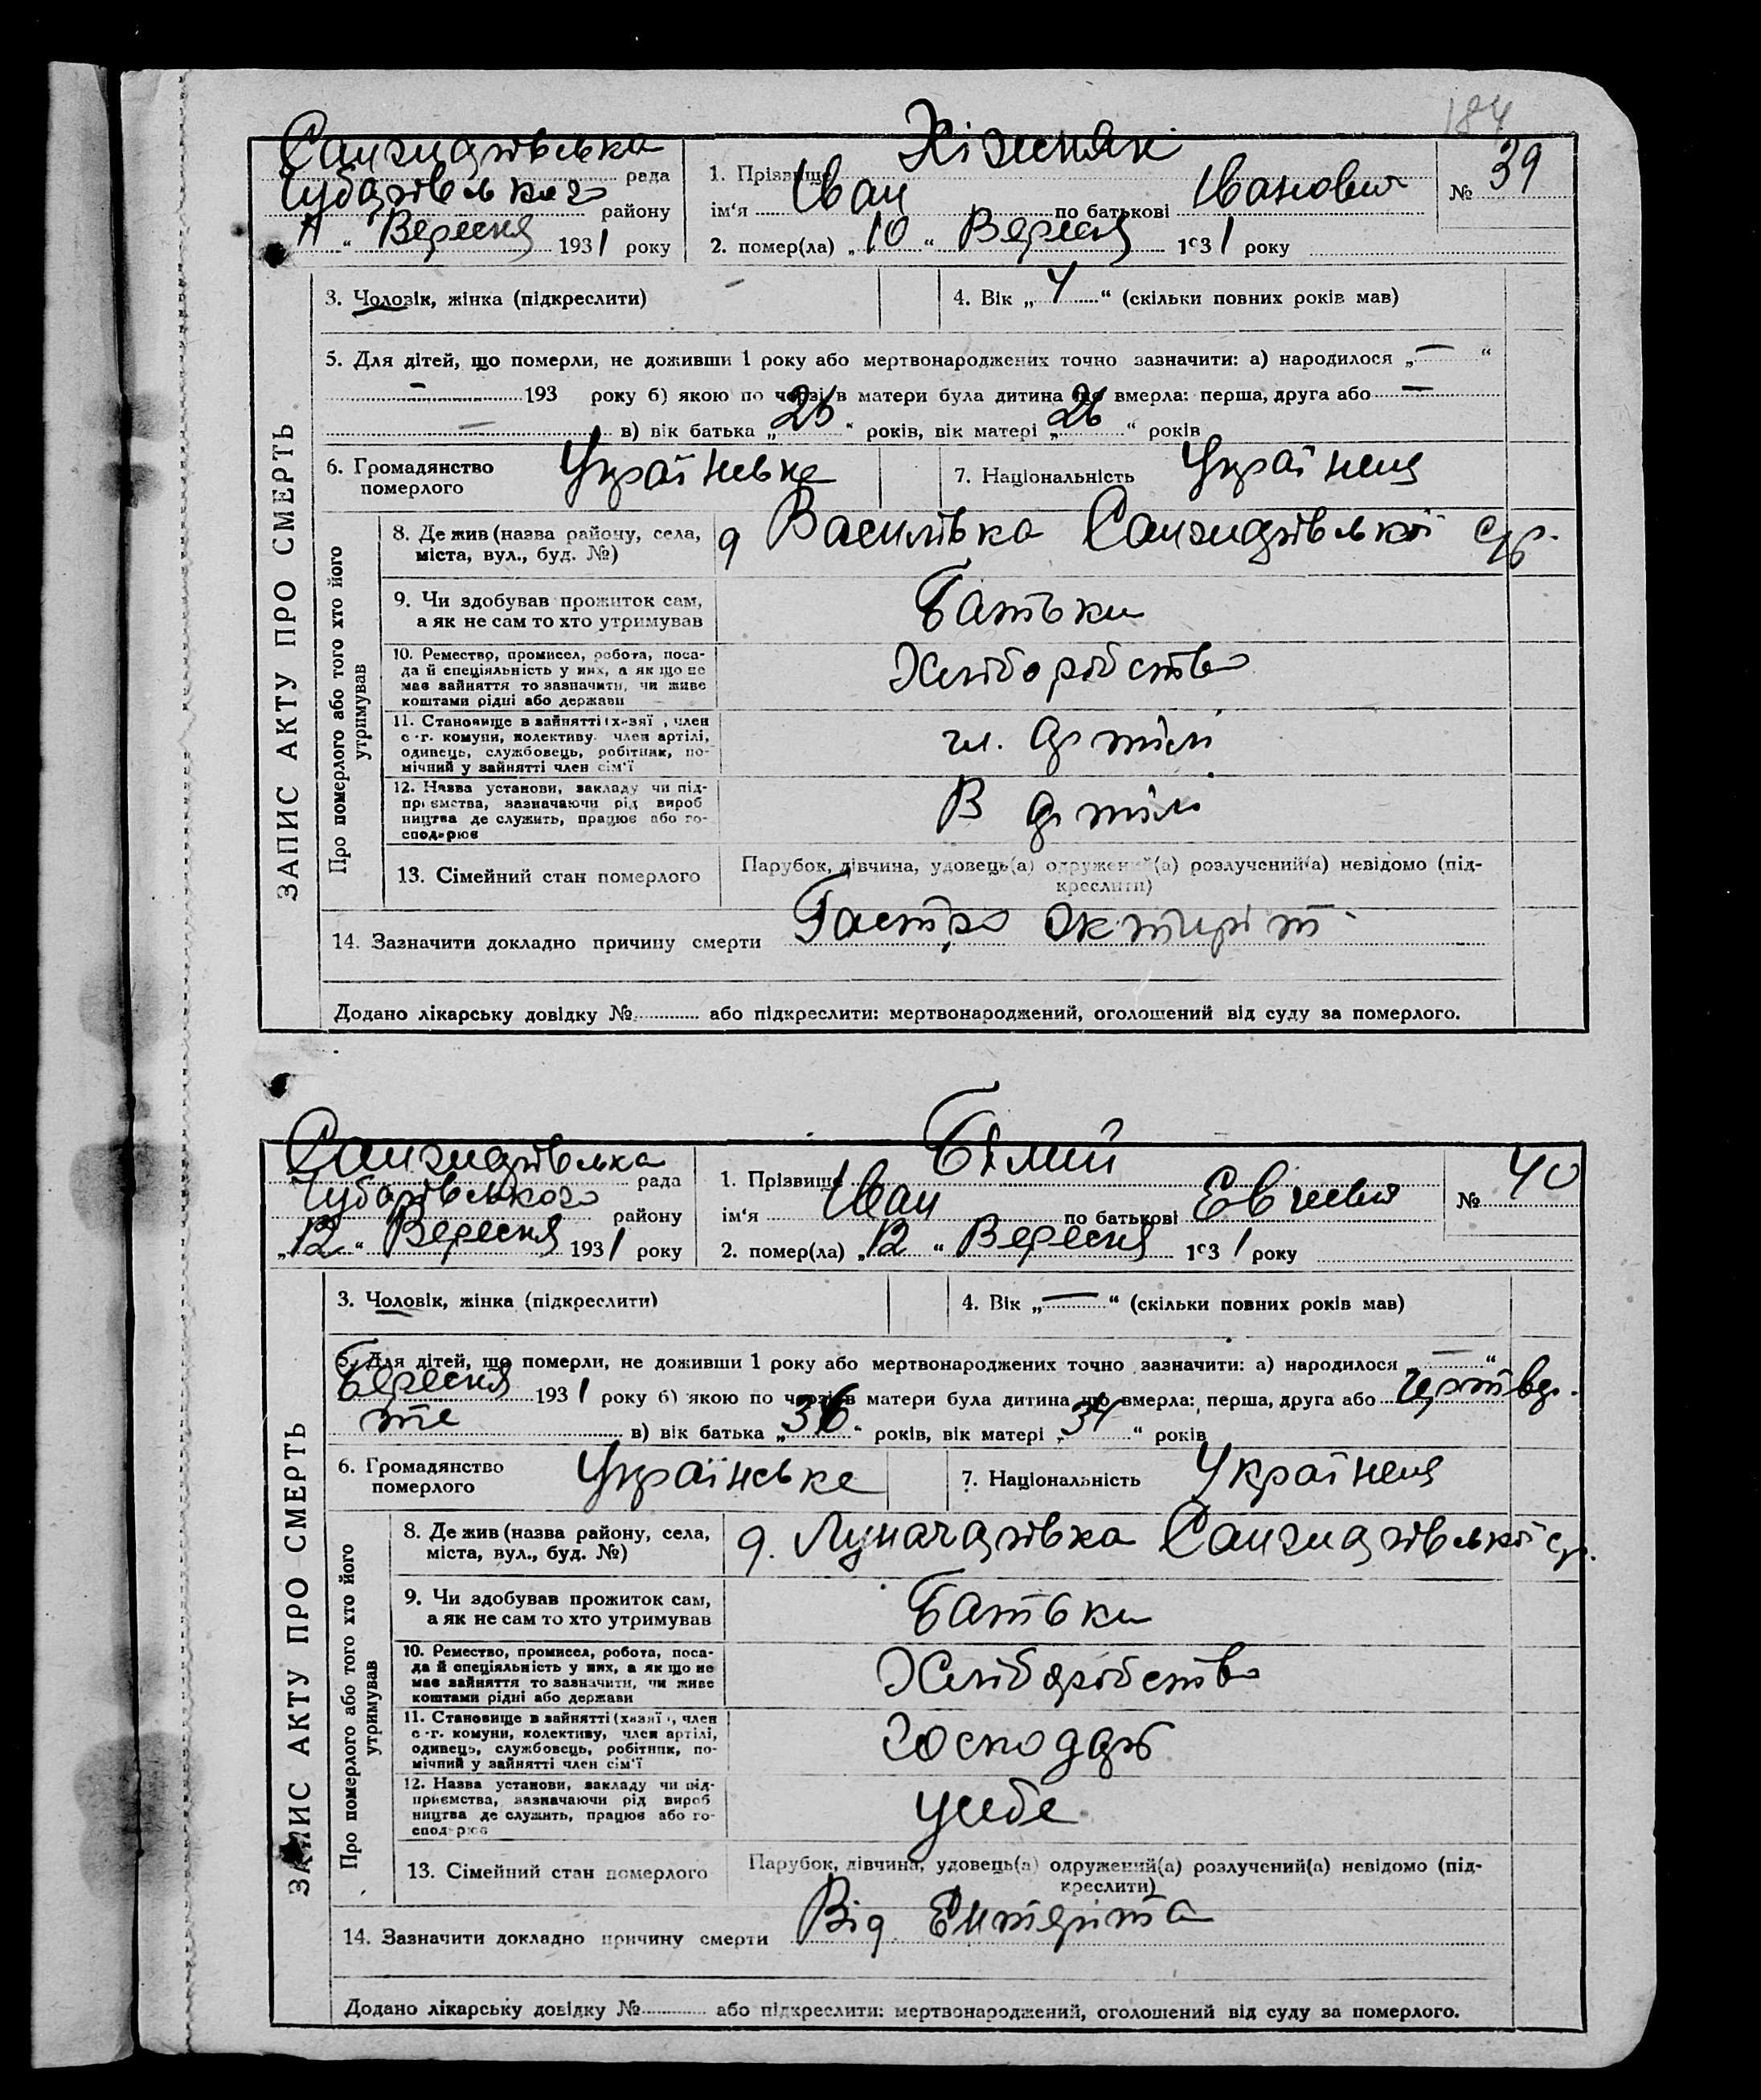 184
Хіжняк
рада 1. Прізвище № 39
Чубарівського району ім'я Іван по батькові Іванович
11 " Вересня 1931 року 2. помер(ла) „ 10 " Вересня 1931 року
ЗАПИС АКТУ ПРО СМЕРТЬ
3. Чоловік, жінка (підкреслити) — 4. Вік „ 4 " (скільки повних років мав)
5. Для дітей, що померли, не доживши 1 року або мертвонароджених точно зазначити: а) народилося „ — "
— 193 року б) якою по черзі в матери була дитина що вмерла: перша, друга або —
— в) вік батька „ 26 " років, вік матері „ 26 " років
6. Громадянство померлого Українське 7. Національність Українец
Про померлого або того хто його утримував
8. Де жив (назва району, села,
міста, вул., буд. №) д Василівка
9. Чи здобував прожиток сам,
а як не сам то хто утримував Батьки
10. Ремество, промисел, робота, поса-
да й спеціяльність у них, а як що не
має зайняття то зазначити, чи живе
коштами рідні або держави Хліборобство
11. Становище в зайнятті (х-зяї , член
с.-г. комуни, колективу. член артілі,
одинець, службовець, робітник, по-
мічний у зайнятті член сім'ї чл. артілі
12. Назва установи, закладу чи під-
приємства, зазначаючи рід вироб
ництва де служить, працює або го-
сподарює В артілі
13. Сімейний стан померлого Парубок, дівчина, удовець(а) одружений(а) розлучений(а) невідомо (під-
креслити)
14. Зазначити докладно причину смерти Гастро
Додано лікарську довідку № або підкреслити: мертвонароджений, оголошений від суду за померлого.
Білий
рада 1. Прізвище № 40
Чубарівського району ім'я Іван по батькові
„ 12 " Вересня 1931 року 2. помер(ла) „ 12 " Вересня 1931 року
ЗАПИС АКТУ ПРО СМЕРТЬ
3. Чоловік, жінка (підкреслити) 4. Вік „ — " (скільки повних років мав)
5. Для дітей, що померли, не доживши 1 року або мертвонароджених точно зазначити: а) народилося „ — "
1931 року б) якою по черзі в матери була дитина що вмерла: перша, друга або четвер-
те в) вік батька „ 36 " років, вік матері „ 34 " років
6. Громадянство померлого Українське 7. Національність Українец
Про померлого або того хто його утримував
8. Де жив (назва району, села,
міста, вул., буд. №) д. Луначарівка
9. Чи здобував прожиток сам,
а як не сам то хто утримував Батьки
10. Ремество, промисел, робота, поса-
да й спеціяльність у них, а як що не
має зайняття то зазначити, чи живе
коштами рідні або держави Хліборобство
11. Становище в зайнятті (хазяї , член
с.-г. комуни, колективу, член артілі,
одинець, службовець, робітник, по-
мічний у зайнятті член сім'ї Господарь
12. Назва установи, закладу чи під-
приємства, зазначаючи рід вироб
ництва де служить, працює або го-
сподарює усебе
13. Сімейний стан померлого Парубок, дівчина, удовець(а) одружений(а) розлучений(а) невідомо (під-
креслити)
14. Зазначити докладно причину смерти Від Ентеріта
Додано лікарську довідку № або підкреслити: мертвонароджений, оголошений від суду за померлого.